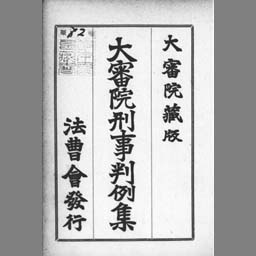 大審院藏版
大審院刑事判例集
法曹會發行